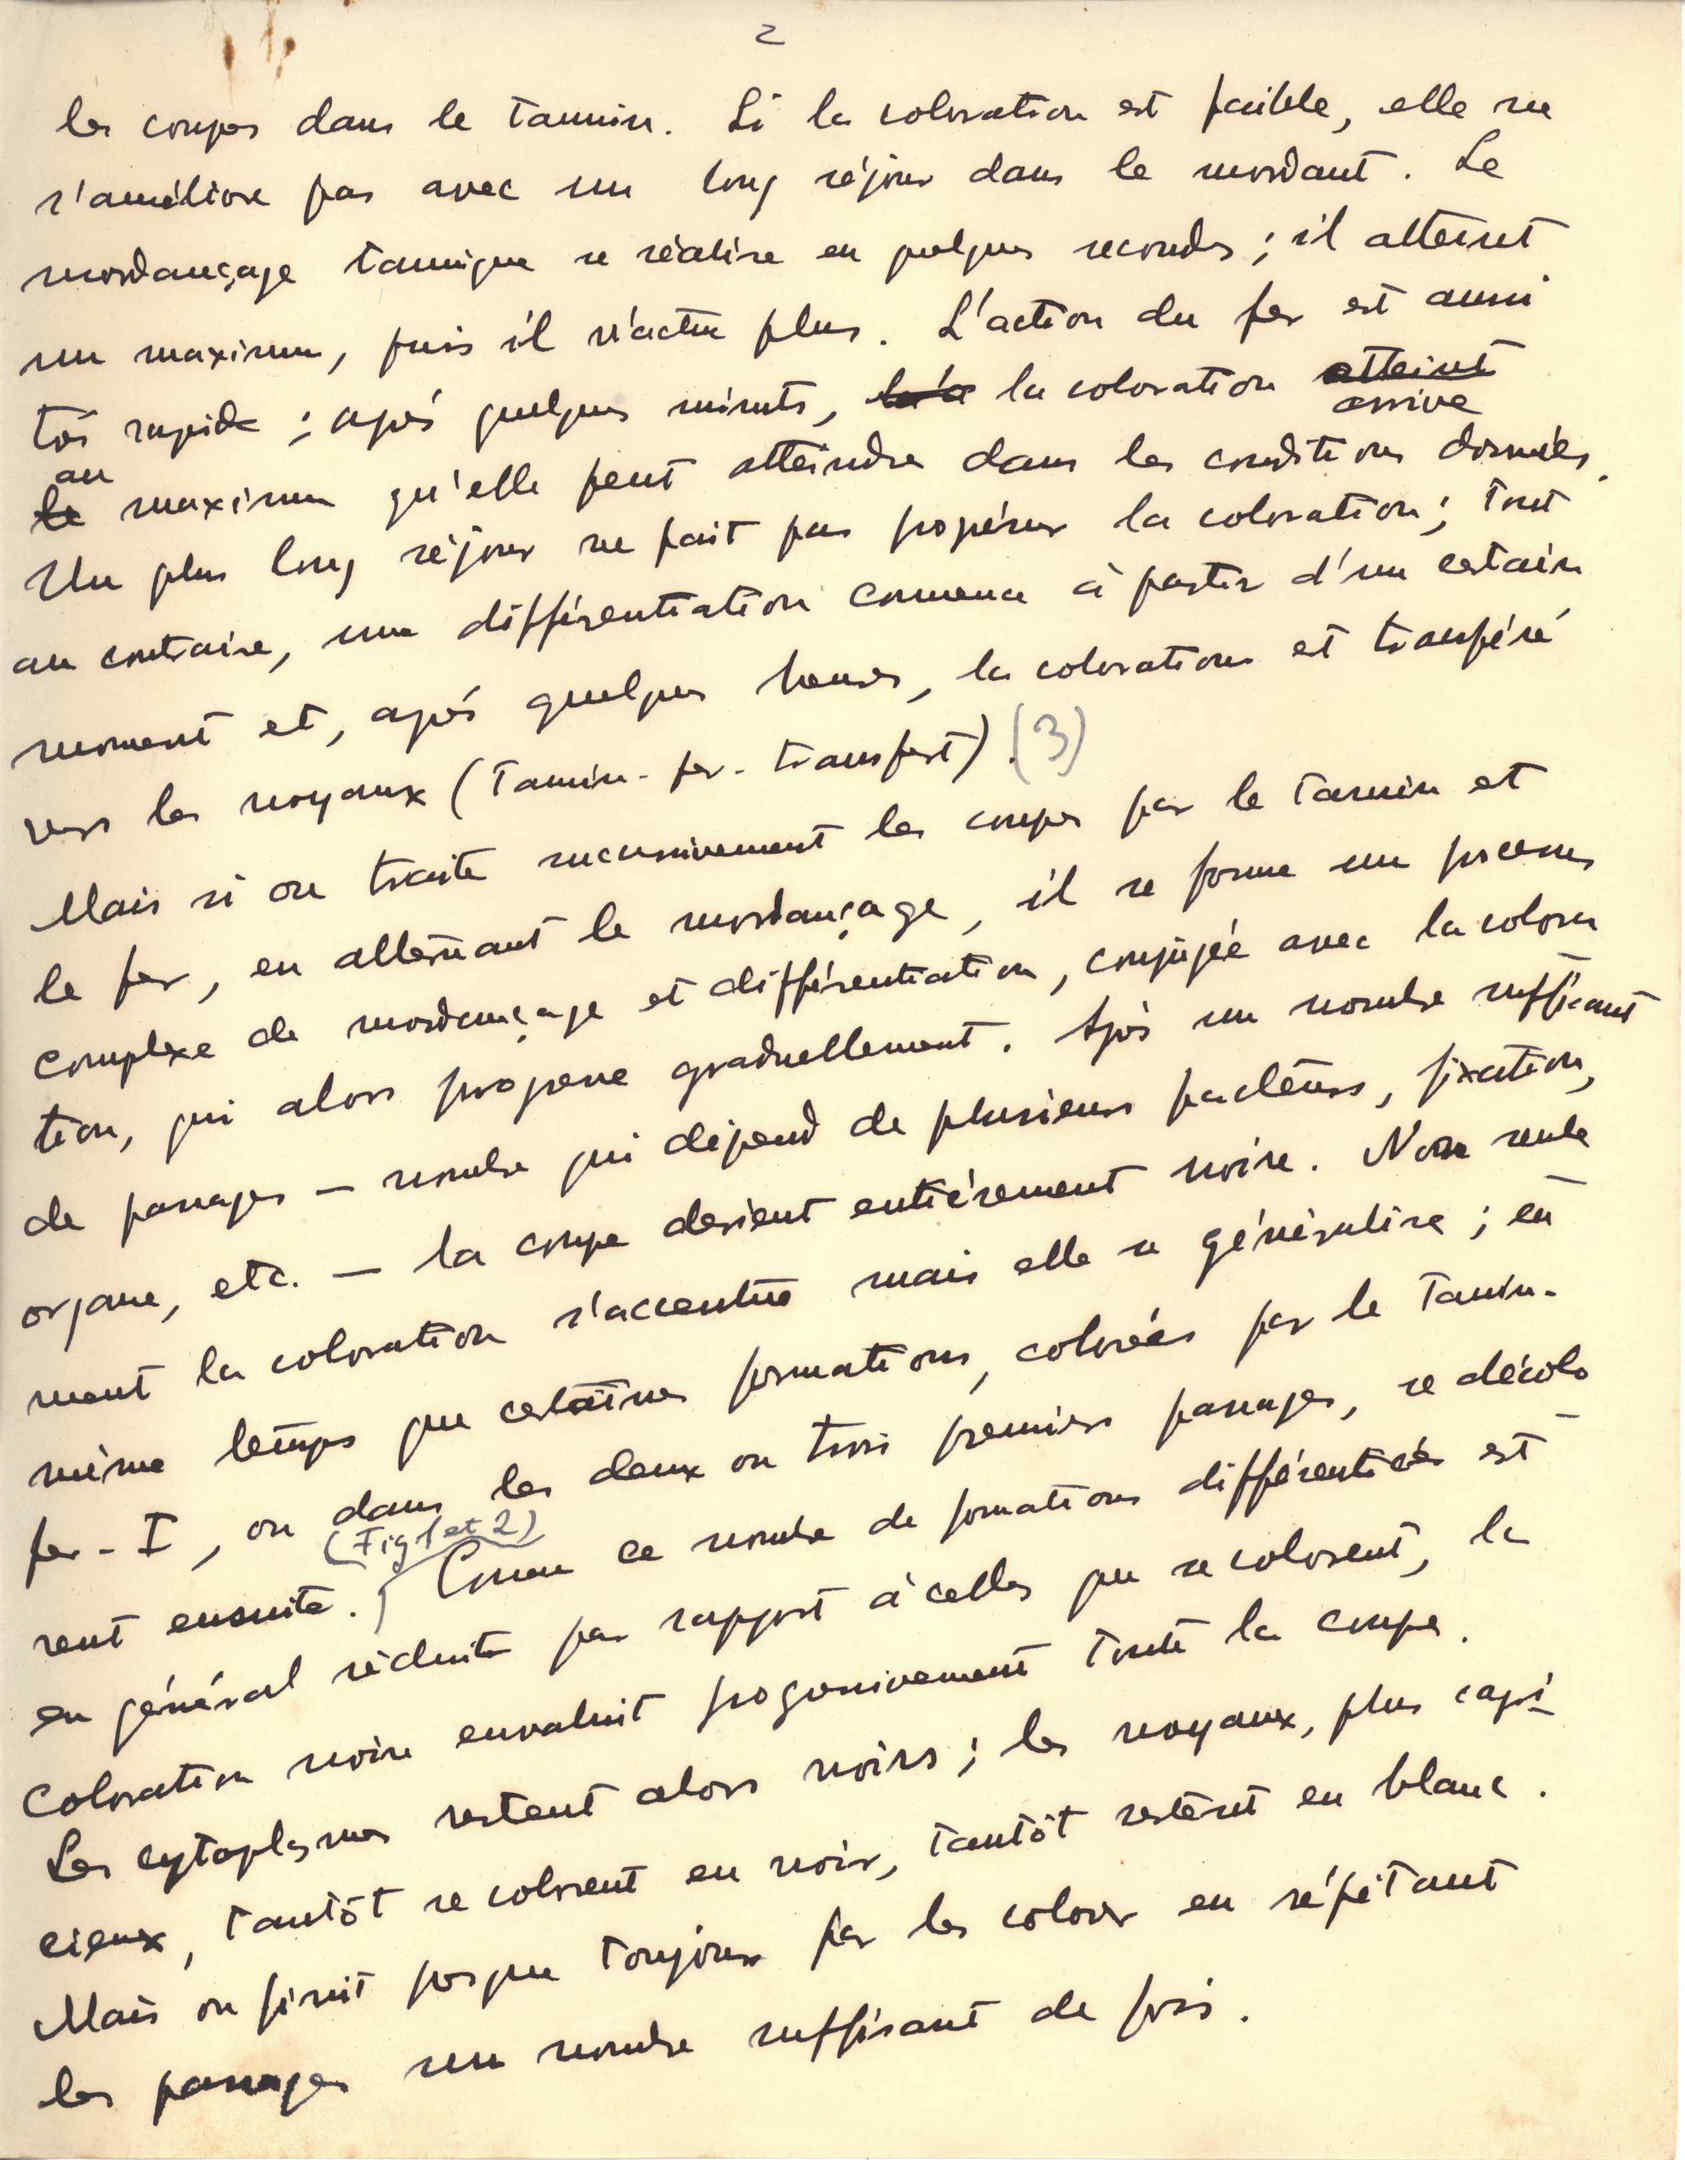 2
les coupes dans le tannin. Si la coloration est faible, elle ne
s'améliore pas avec un long séjour dans le mordant. Le
mordançage tannique se réalise en quelques secondes ; il atteint
un maximum, puis il n'actue plus. L'action du fer est aussi
très rapide ; après quelques minutes, la coloration atteint arrive
le au maximum qu'elle peut atteindre dans les conditions données.
Un plus long séjour ne fait pas progresser la coloration ; tout
au contraire, une différentiation commence à partir d'un certain
moment et, après quelques heures, la coloration est transféré
vers les noyaux (Tannin-fer-transfert). (3)
Mais si on traite successivement les coupes par le tannin et
le fer, en alternant le mordançage, il se forme un processus
complexe de mordançage et différentiation, conjugée avec la colora
tion, qui alors progresse graduellement. Après un nombre suffisant
de passages — nombre qui dépend de plusieurs facteurs, fixation,
organe, etc. — la coupe devient entièrement noire. Non seule
ment la coloration s'accentue mais elle se généralise ; en
même temps que certaines formations, colorées par le Tannin-
fer-I, ou dans les deux ou trois premiers passages, se décolo
rent ensuite. (Fig 1 et 2) Comme ce nombre de formations différentiées est
en général réduite par rapport à celles que se colorent, la
coloration noire envahit progressivement toute la coupe.
Les cytoplasmes restent alors noirs ; les noyaux, plus capri-
cieux, tantôt se colorent en noir, tantôt restent en blanc.
Mais on finit presque toujours par les colorer en répétant
les passages un nombre suffisant de fois.